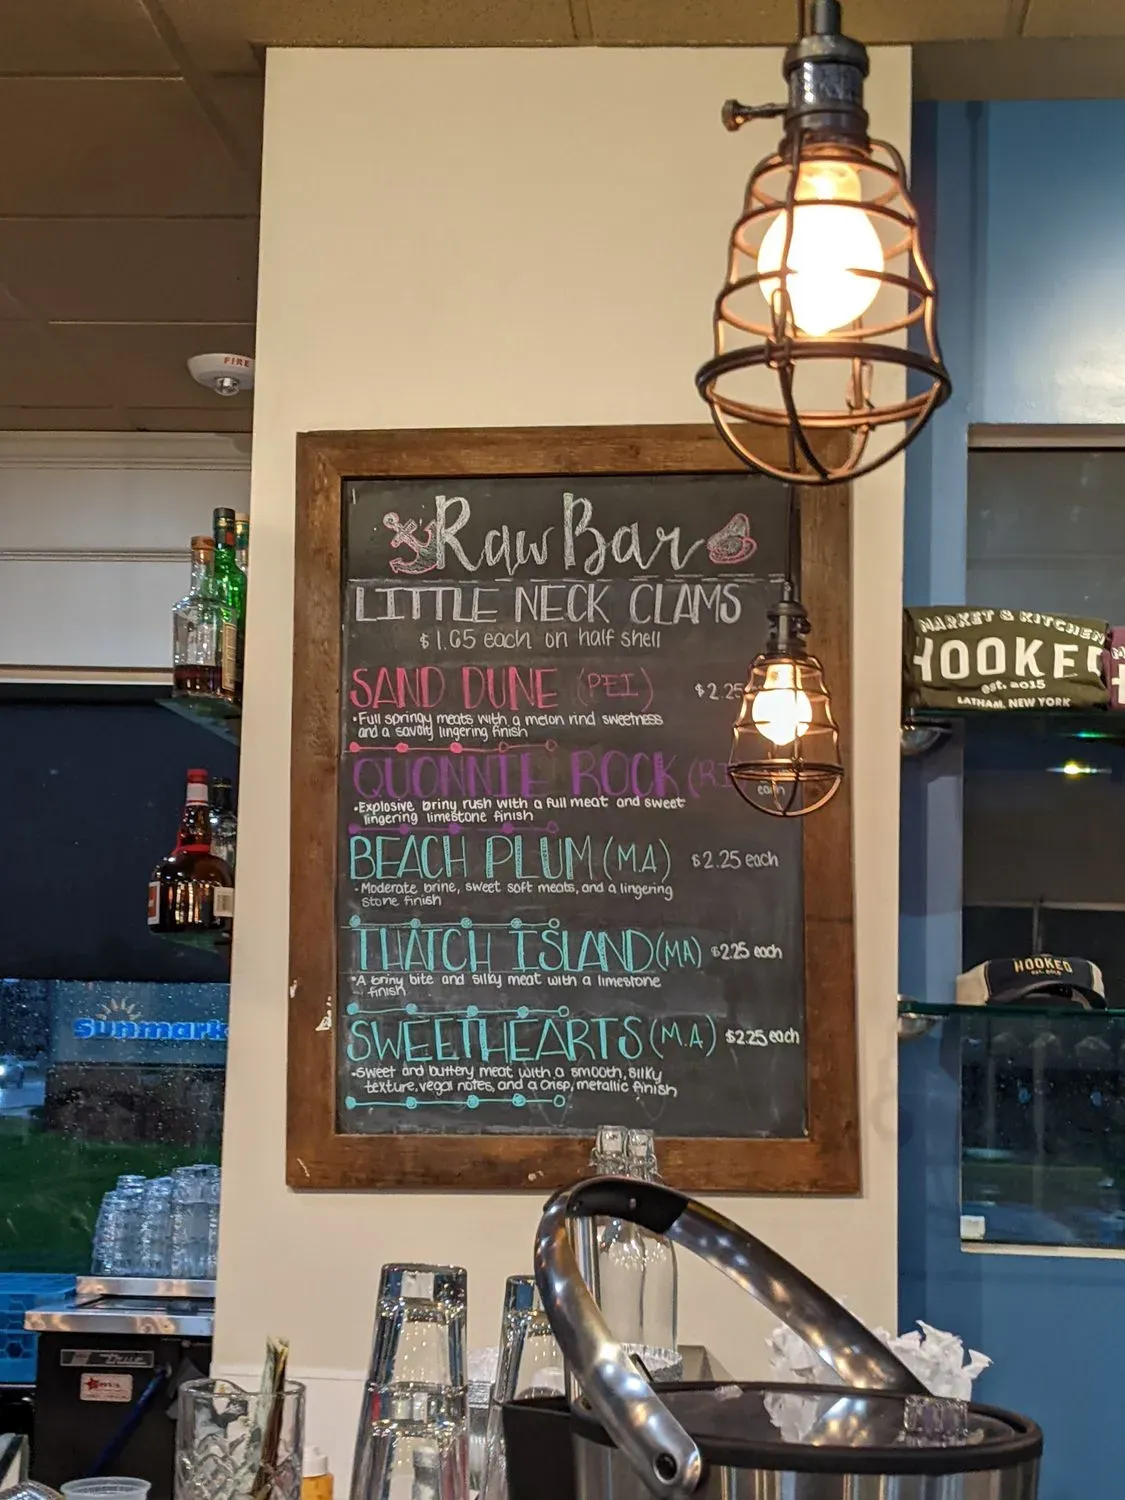 FIRE
Raw Bar
LITTLE NECK CLAMS
$1.65 each on half shell
SAND DUNE (PEI) $2.25
•Full springy meats with a melon rind sweetness
and a savory lingering finish
QUONNIE ROCK (RI
each
•Explosive briny rush with a full meat and sweet
lingering limestone finish
BEACH PLUM (MA) $2.25 each
•Moderate brine, sweet soft meats, and a lingering
stone finish
THATCH ISLAND (MA) $2.25 each
•A briny bite and silky meat with a limestone
finish
SWEETHEARTS (M.A) $2.25 each
•Sweet and buttery meat with a smooth, silky
texture, vegal notes, and a crisp, metallic finish
MARKET & KITCHEN
HOOKED
est. 2015
LATHAM, NEW YORK
HOOKED
sunmark